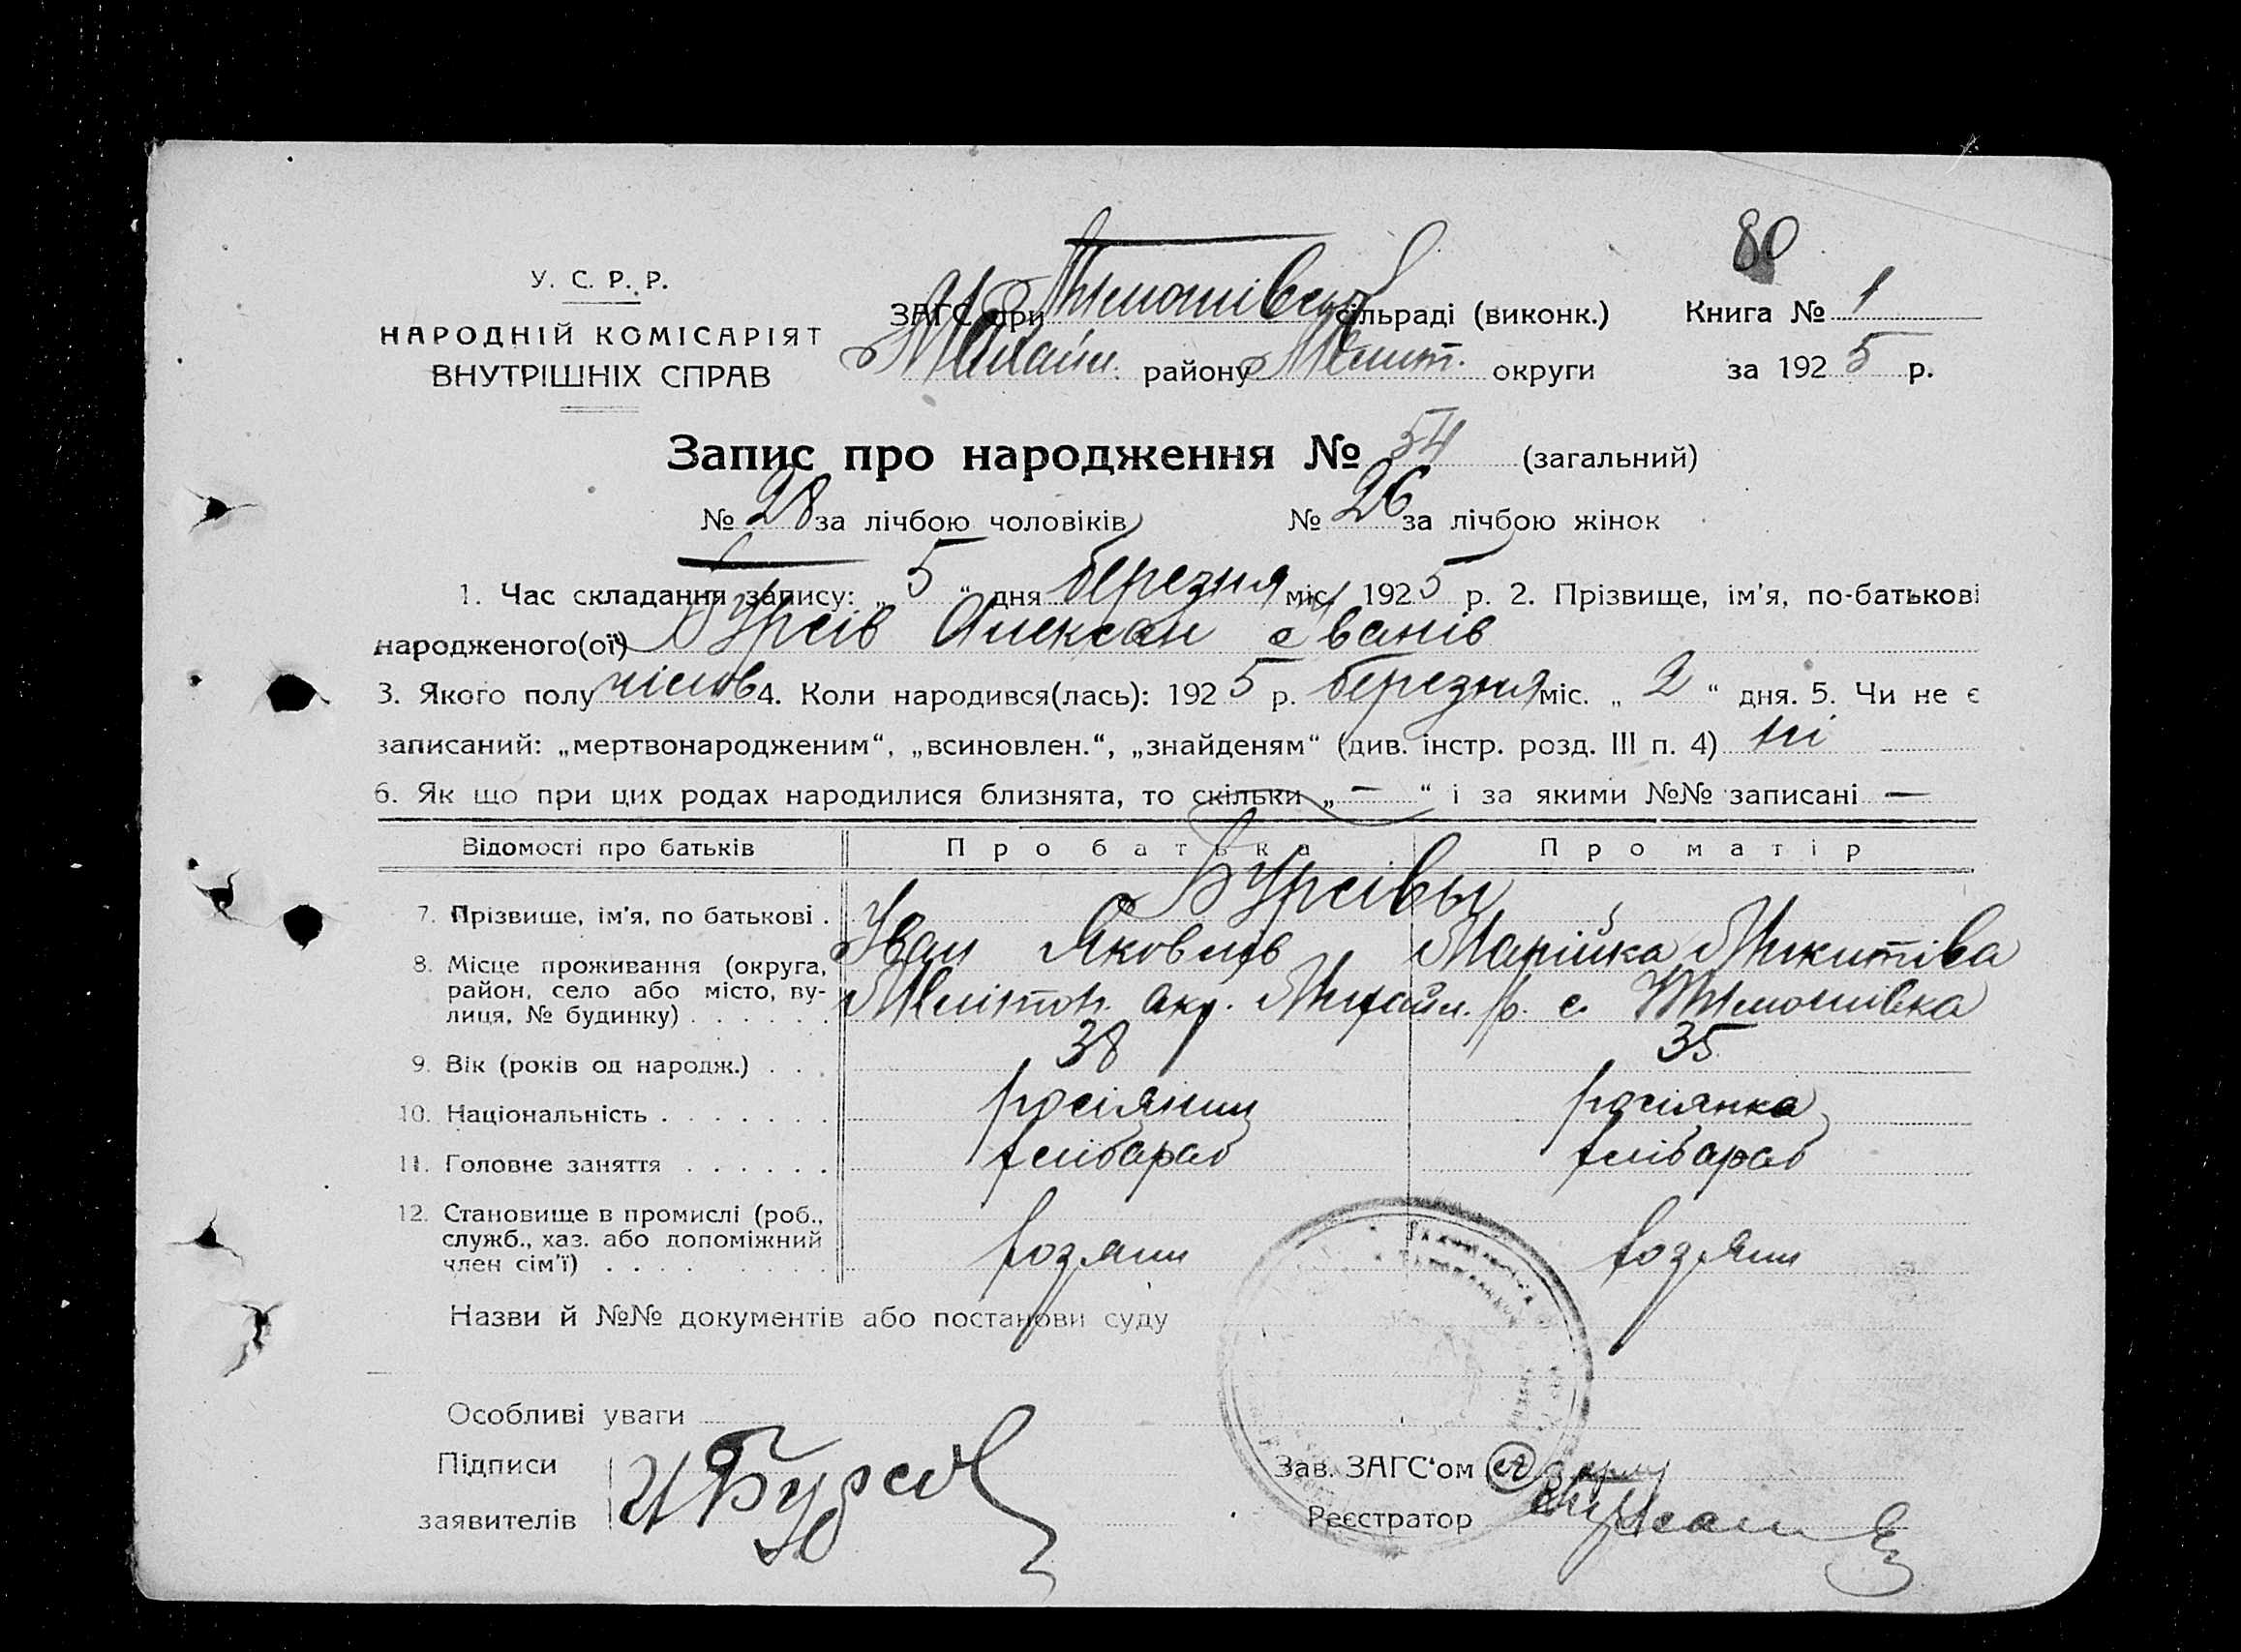 80
У. С. Р. Р.
НАРОДНІЙ КОМІСАРІЯТ
ВНУТРІШНІХ СПРАВ
ЗАГС при Тимошівск сільраді (виконк.) Книга № 1
Михайл. району Меліт. округи за 1925 р.
Запис про народження № 54 (загальний)
№ 28 за лічбою чоловіків № 26 за лічбою жінок
1. Час складання запису: „ 5 “ дня березня міс. 1925 р. 2. Прізвище, ім'я, по-батькові
народженого(ої) Бурсів Алексан Іванів
3. Якого полу чолов 4. Коли народився(лась): 1925 р. березня міс. „ 2 “ дня. 5. Чи не є
записаний: „мертвонародженим“, „всиновлен.“, „знайденям“ (див. інстр. розд. III п. 4) ні
6. Як що при цих родах народилися близнята, то скільки „ — “ і за якими №№ записані —
Відомості про батьків Про батька Про матір
Бурсівы
7. Прізвище, ім'я, по батькові . Іван Яковлів Марійка Микитівa
8. Місце проживання (округа, район, село або місто, вулиця, № будинку) . . . . . . Мелітоп. окр. Михайл. р. с. Тимошівка
9. Вік (років од народж.) . . . 38 35
10. Національність . . . . . . . росіянин росіянка
11. Головне заняття . . . . . . хлібороб хлібороб
12. Становище в промислі (роб., служб., хаз. або допоміжний член сім'ї) . . . . . . . . . хозяин хозяин
Назви й №№ документів або постанови суду
Особливі уваги
Підписи
заявителів
И Бурсов
Зав. ЗАГС'ом
Реєстратор